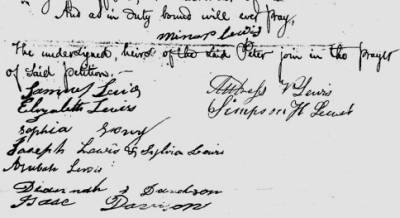 And as in duty bound will ever pray,
Minor Lewis
The undersigned, heirs of the said Peter join in the prayer
of said petition.
Samuel Lewis
V Lewis
Elizabeth Lewis
Simpson H Lewis
Sophia
Joseph Lewis & Sylvia Lewis
Lewis
Davidson
Isaac Davison